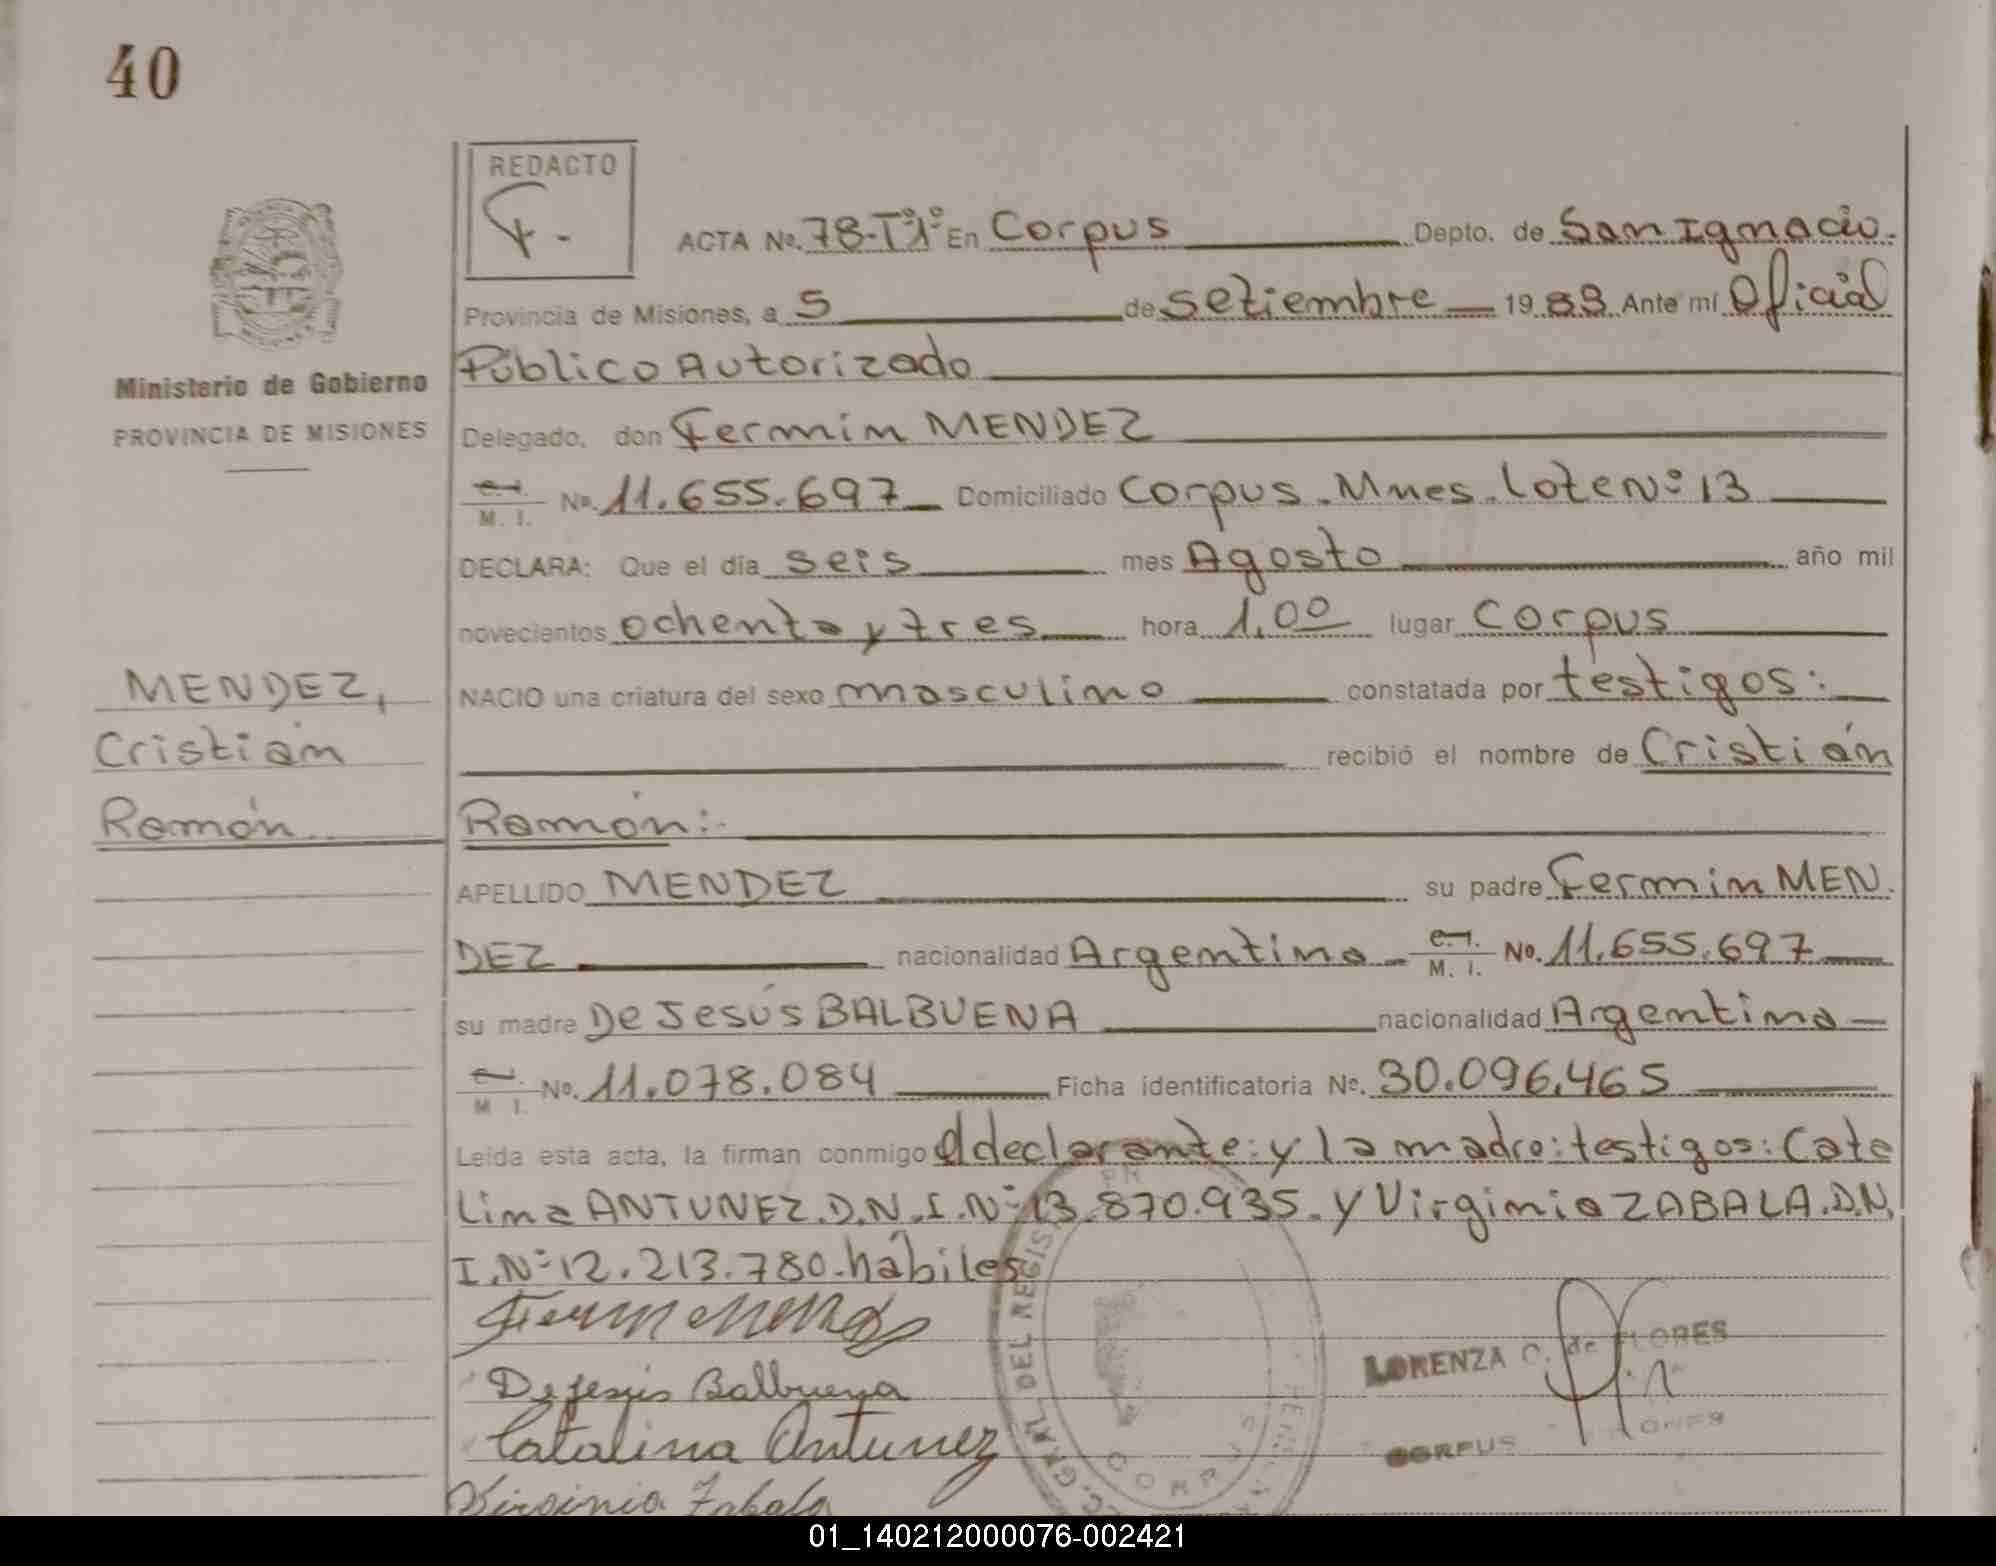 40
REDACTO
F.-
ACTA No. 78-Tº1º En Corpus Depto. de San Ignacio.
Provincia de Misiones, a 5 de setiembre 1983 Ante mí Oficial
Ministerio de Gobierno
PROVINCIA DE MISIONES
Público Autorizado
Delegado, don Fermin MENDEZ
M. I. No. 11.655.697 Domiciliado Corpus. Mnes. Lote Nº 13
DECLARA: Que el día seis mes Agosto año mil
novecientos ochenta y tres hora 1,00 lugar Corpus
MENDEZ,
Cristián
Ramón
NACIO una criatura del sexo masculino constatada por testigos:
recibió el nombre de Cristián
Ramón:-
APELLIDO MENDEZ su padre Fermin MEN.
DEZ nacionalidad Argentina M. I. No. 11.655.697
su madre De Jesús BALBUENA nacionalidad Argentina
M I. No. 11.078.084 Ficha identificatoria No. 30.096.465
Leída esta acta, la firman conmigo el declarante: y la madre: testigos: Cata
lina ANTUNEZ. D.N.I. Nº 13.870.935. y Virginia ZABALA. D.N.
I. Nº 12.213.780. hábiles
De Jesús Balbuena
Catalina Antunez
Virginia Zabala
LORENZA C. de FLORES
CORPUS
DEL REGIS
CORPUS
01_140212000076-002421